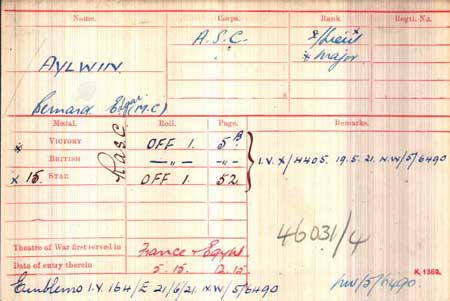 Name. Corps. Rank. Regtl. No.
A.S.C. x/Lieut
" x Major
AYLWIN
Bernard Edgar (M.C)
Medal. Roll. Page. Remarks.
R.A.S.C.
x VICTORY OFF 1. 5B
BRITISH —"— —"— I.V. X/4405. 19.5.21. N.W/5/6490
x 15. STAR OFF 1. 52.
46031/4
Theatre of War first served in France & Egypt
Date of entry therein 5.15. 12.15.
K. 1380.
Emblems I.V. 164/E 21/6/21. N.W/5/6490
NW/5/6490.